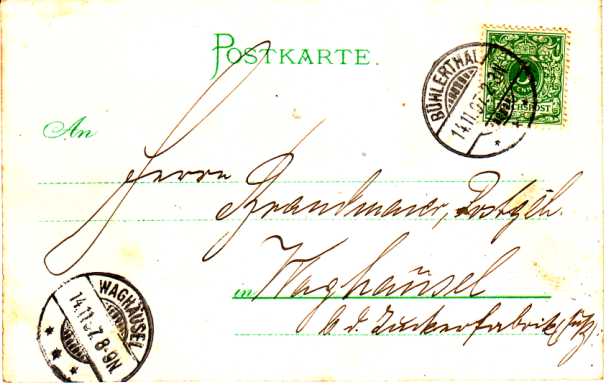 POSTKARTE.
BÜHLERTHAL
14.11.97.
5
REICHSPOST
An
Herrn
Brandmaier, Postgeh.
in Waghäusel
b. d. Zuckerfabrik
WAGHÄUSEL
14.11.97. 8-9N